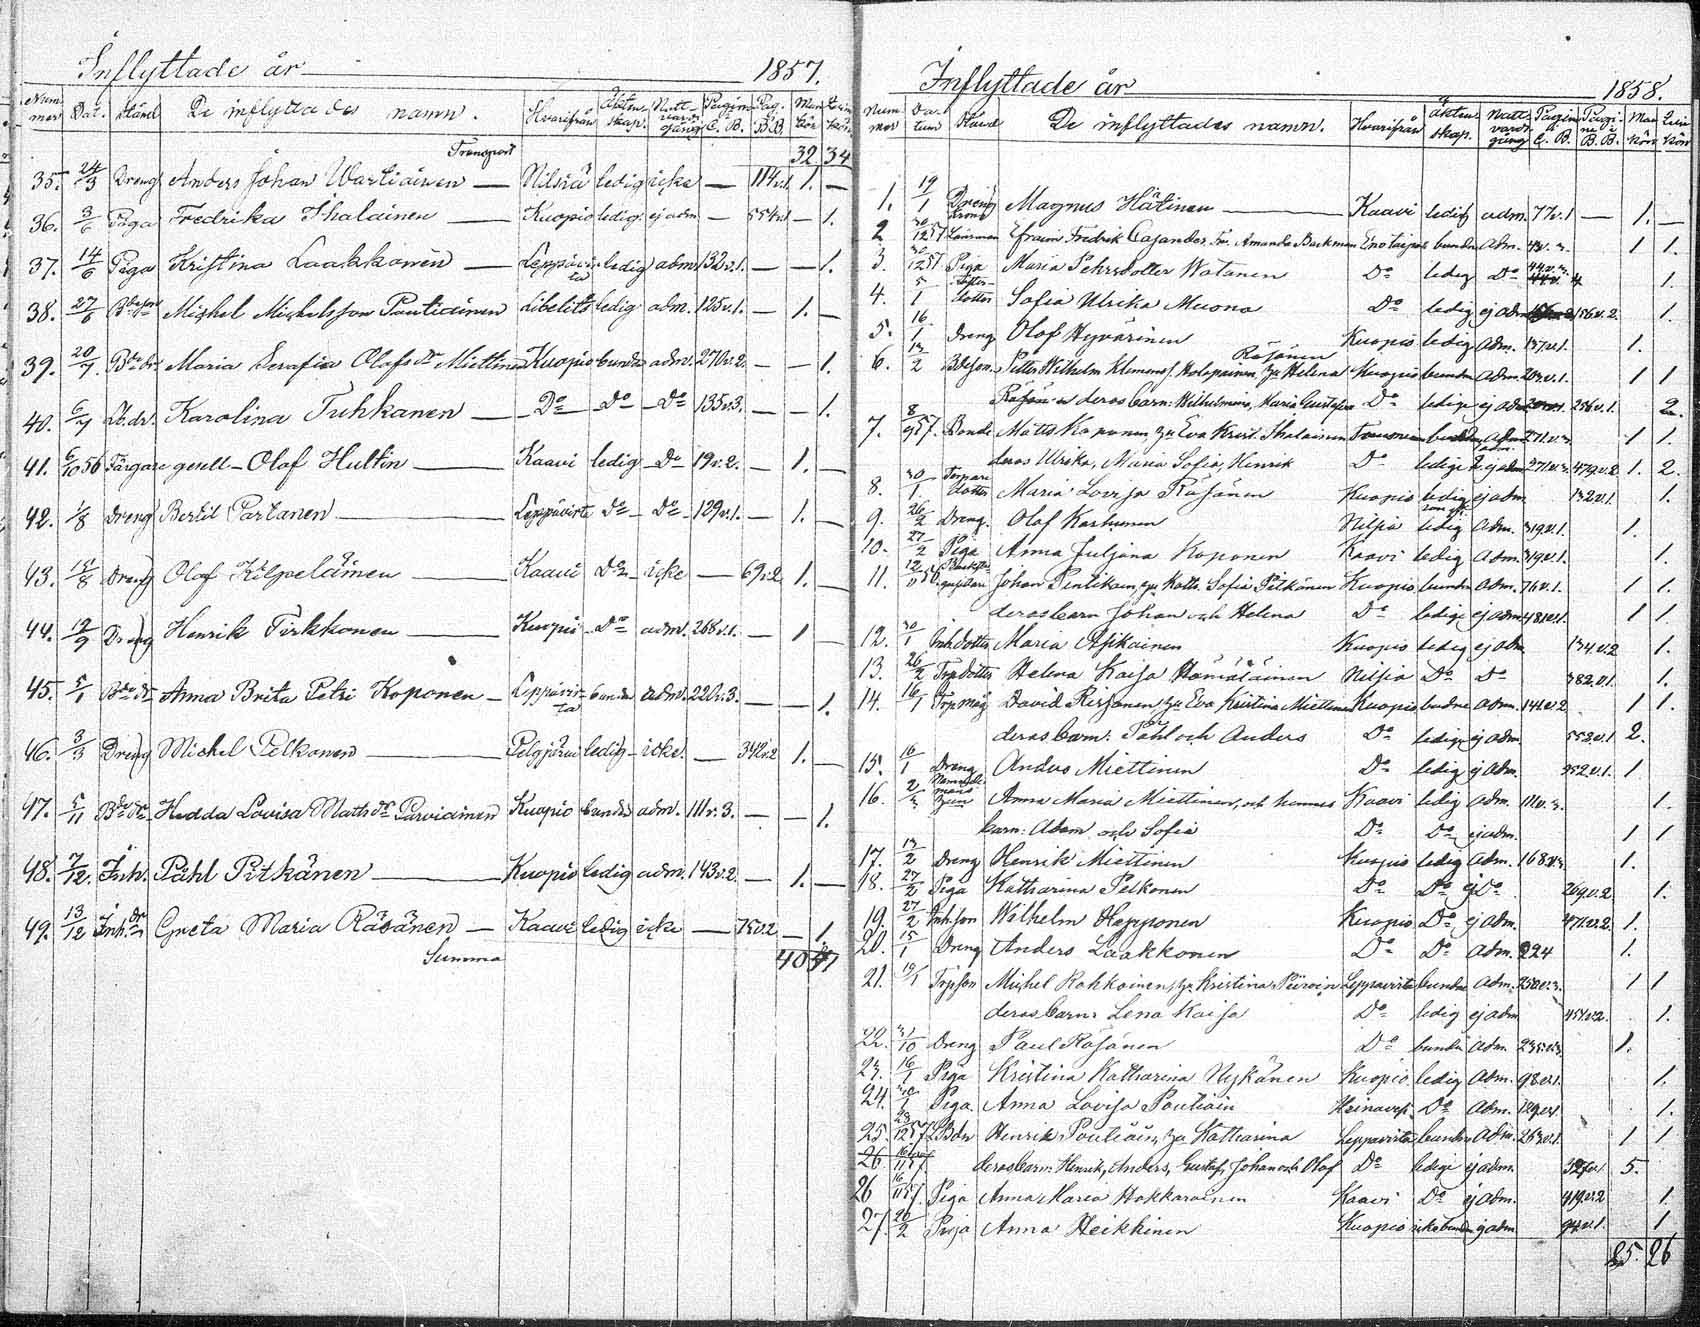 Inflyttade år 1857.
Nummer Dat. Stånd De inflyttades namn. Hvarifrån Äktenskap. Nattvardsgång Pagina C.B. Pag. B.B. Mankön Qvinkön
Transport 32 34
35. 24/3 Dreng Anders Johan Wartiainen — Nilsiä ledig icke — 114v.1. 1. —
36. 3/6 Piga Fredrika Ihalainen — Kuopio ledig. ej adm — 554v.1 — 1.
37. 14/6 Piga Kristina Laakkonen — Leppävirta ledig adm. 132v.1. — — 1.
38. 27/6 Michel Michelsson Poutiainen Libelits ledig adm. 125v.1. — 1. —
39. 20/7 Maria Serafia Olofs dr Miettinen Kuopio bunden adm. 270v.2. — — 1.
40. 6/7 Karolina Tuhkanen — Do Do Do 135v.3. — — 1.
41. 6/10 56 Färgare gesell — Olof Hultin — Kaavi ledig Do 19v.2. — 1. —
42. 1/8 Dreng Bertil Partanen — Leppävirta Do Do 129v.1. — 1. —
43. Dreng Olof Kilpeläinen — Kaavi Do icke — 69v.2 1. —
44. 12/9 Dreng Henrik Tirkkonen — Kuopio Do adm. 268v.1. — 1 —
45. 5/1 Anna Brita Petri Koponen — Leppävirta bunden adm. 220v.3. — — 1.
46. 3/3 Dreng Michel Pelkonen — Pelgjärvi ledig icke. — 342v.2 1. —
47. 5/11 Hedda Lovisa Matts dr Parviainen Kuopio bunden adm. 111v.3. — — 1.
48. 7/12. Inh. Påhl Pitkänen — Kuopio ledig adm. 143v.2. — 1. —
49. 13/12 Inh. dr Greta Maria Räsänen — Kaavi ledig icke — 75v.2 — 1.
Summa 40
Inflyttade år 1858.
Nummer Datum Stånd De inflyttades namn. Hvarifrån Äktenskap. Nattvardsgång Pagina C.B. Pagina B.B. Mankön Qvinkön
1. 19/1 Dreng Magnus Hätinen — Kaavi ledig adm. 77v.1 — 1. —
2 30/12 57 Länsman Efraim Fredrik Cajander, Amanda Backman Eno bunden adm. 1 1.
3. 30/12 57 Piga Maria Pehrsdotter Watanen Do ledig Do 1.
4. 5/1 dotter Sofia Ulrika Muona Do ledig ej adm 156v.2. 1.
5. 16/1 Dreng Olof Hyvärinen Kuopio ledig adm. 137v.1. 1.
6. 13/2 Bdeson. Petter Wilhelm Klemens s. Holopainen, hu Helena Räsänen Kuopio bunden adm. 203v.1. 1 1
deras barn: Wilhelmina, Maria Gustafva Do ledige ej adm 256v.1. 2.
7. 8/9 57. Bonde Matts Koponen, hu Eva Krist. Ihalainen bunden adm 271v.3. 1 1
deras Ulrika, Maria Sofia, Henrik Do ledige 2 ej adm 271v.3. 479v.2 1. 2.
8. 30/1. Torpare dotter Maria Lovisa Räsänen Kuopio ledig ej adm 132v.1. 1.
9. 26/2 Dreng. Olof Karhunen Nilsiä ledig adm. 319v.1. 1.
10. 27/2 Piga Anna Juljana Koponen Kaavi ledig adm. 319v.1. 1.
11. Johan Pentikäin, hu Kath. Sofia Pitkänen Kuopio bunden adm. 76v.1. 1 1.
deras barn Johan och Helena Do ledige ej adm. 481v.1. 1 1
12. 30/1 Inh.dotter Maria Asikainen Kuopio ledig ej adm 134v.2 1.
13. 26/2 Trpdotter Helena Kaisa Hämäläinen Nilsiä Do Do 382.v.1. 1.
14. 16/1 Trpmåg David Reijonen, hu Eva Kristina Miettinen Kuopio bundne adm. 141v.2 1 1.
deras barn: Påhl och Anders Do ledige ej adm. 553.v.1 2.
15. 16/1 Dreng Anders Miettinen Do ledig ej adm. 352v.1. 1
16. 2/3 Anna Maria Miettinen, och hennes Kaavi ledig adm. 111v.3. 1.
barn: Adam och Sofia Do Do ej adm. 1 1
17. 13/2 Dreng Henrik Miettinen Kuopio ledig adm. 168v.3. 1.
18. 27/2 Piga Katharina Pelkonen Do Do ej Do 269v.2. 1.
19. 27/2 Inh.son Wilhelm Happonen Kuopio Do ej adm. 471v.2. 1.
20. 15/1 Dreng Anders Laakkonen Do Do adm. 224 1.
21. 19/1 Trpson Michel Rohkainen, hu Kristina Piiroin Leppävirta bundne adm. 250v.3. 1 1
deras barn: Lena Kaisa Do ledig ej adm 454v.2. 1.
22. 31/10 Dreng Paul Räsänen Do bunden adm. 235v.3. 1.
23. 16/1 Piga Kristina Katharina Nykänen Kuopio ledig adm. 98v.1. 1.
24. 30/1 Piga. Anna Lovisa Poutiain Heinävesi. Do adm. 129v.1. 1.
25. 23/12 57. Henrik Poutiain, hu Katharina Leppävirta bundne adm. 263v.1. 1 1
26. deras barn: Henrik, Anders, Gustaf, Johan och Olof Do ledige ej adm. 327v.1 5.
26 16/11 57. Piga Anna Maria Hokkarainen Kaavi Do ej adm. 419v.2 1.
27. 20/2 Piga Anna Heikkinen Kuopio icke bunden ej adm. 94v.1. 1
25. 26